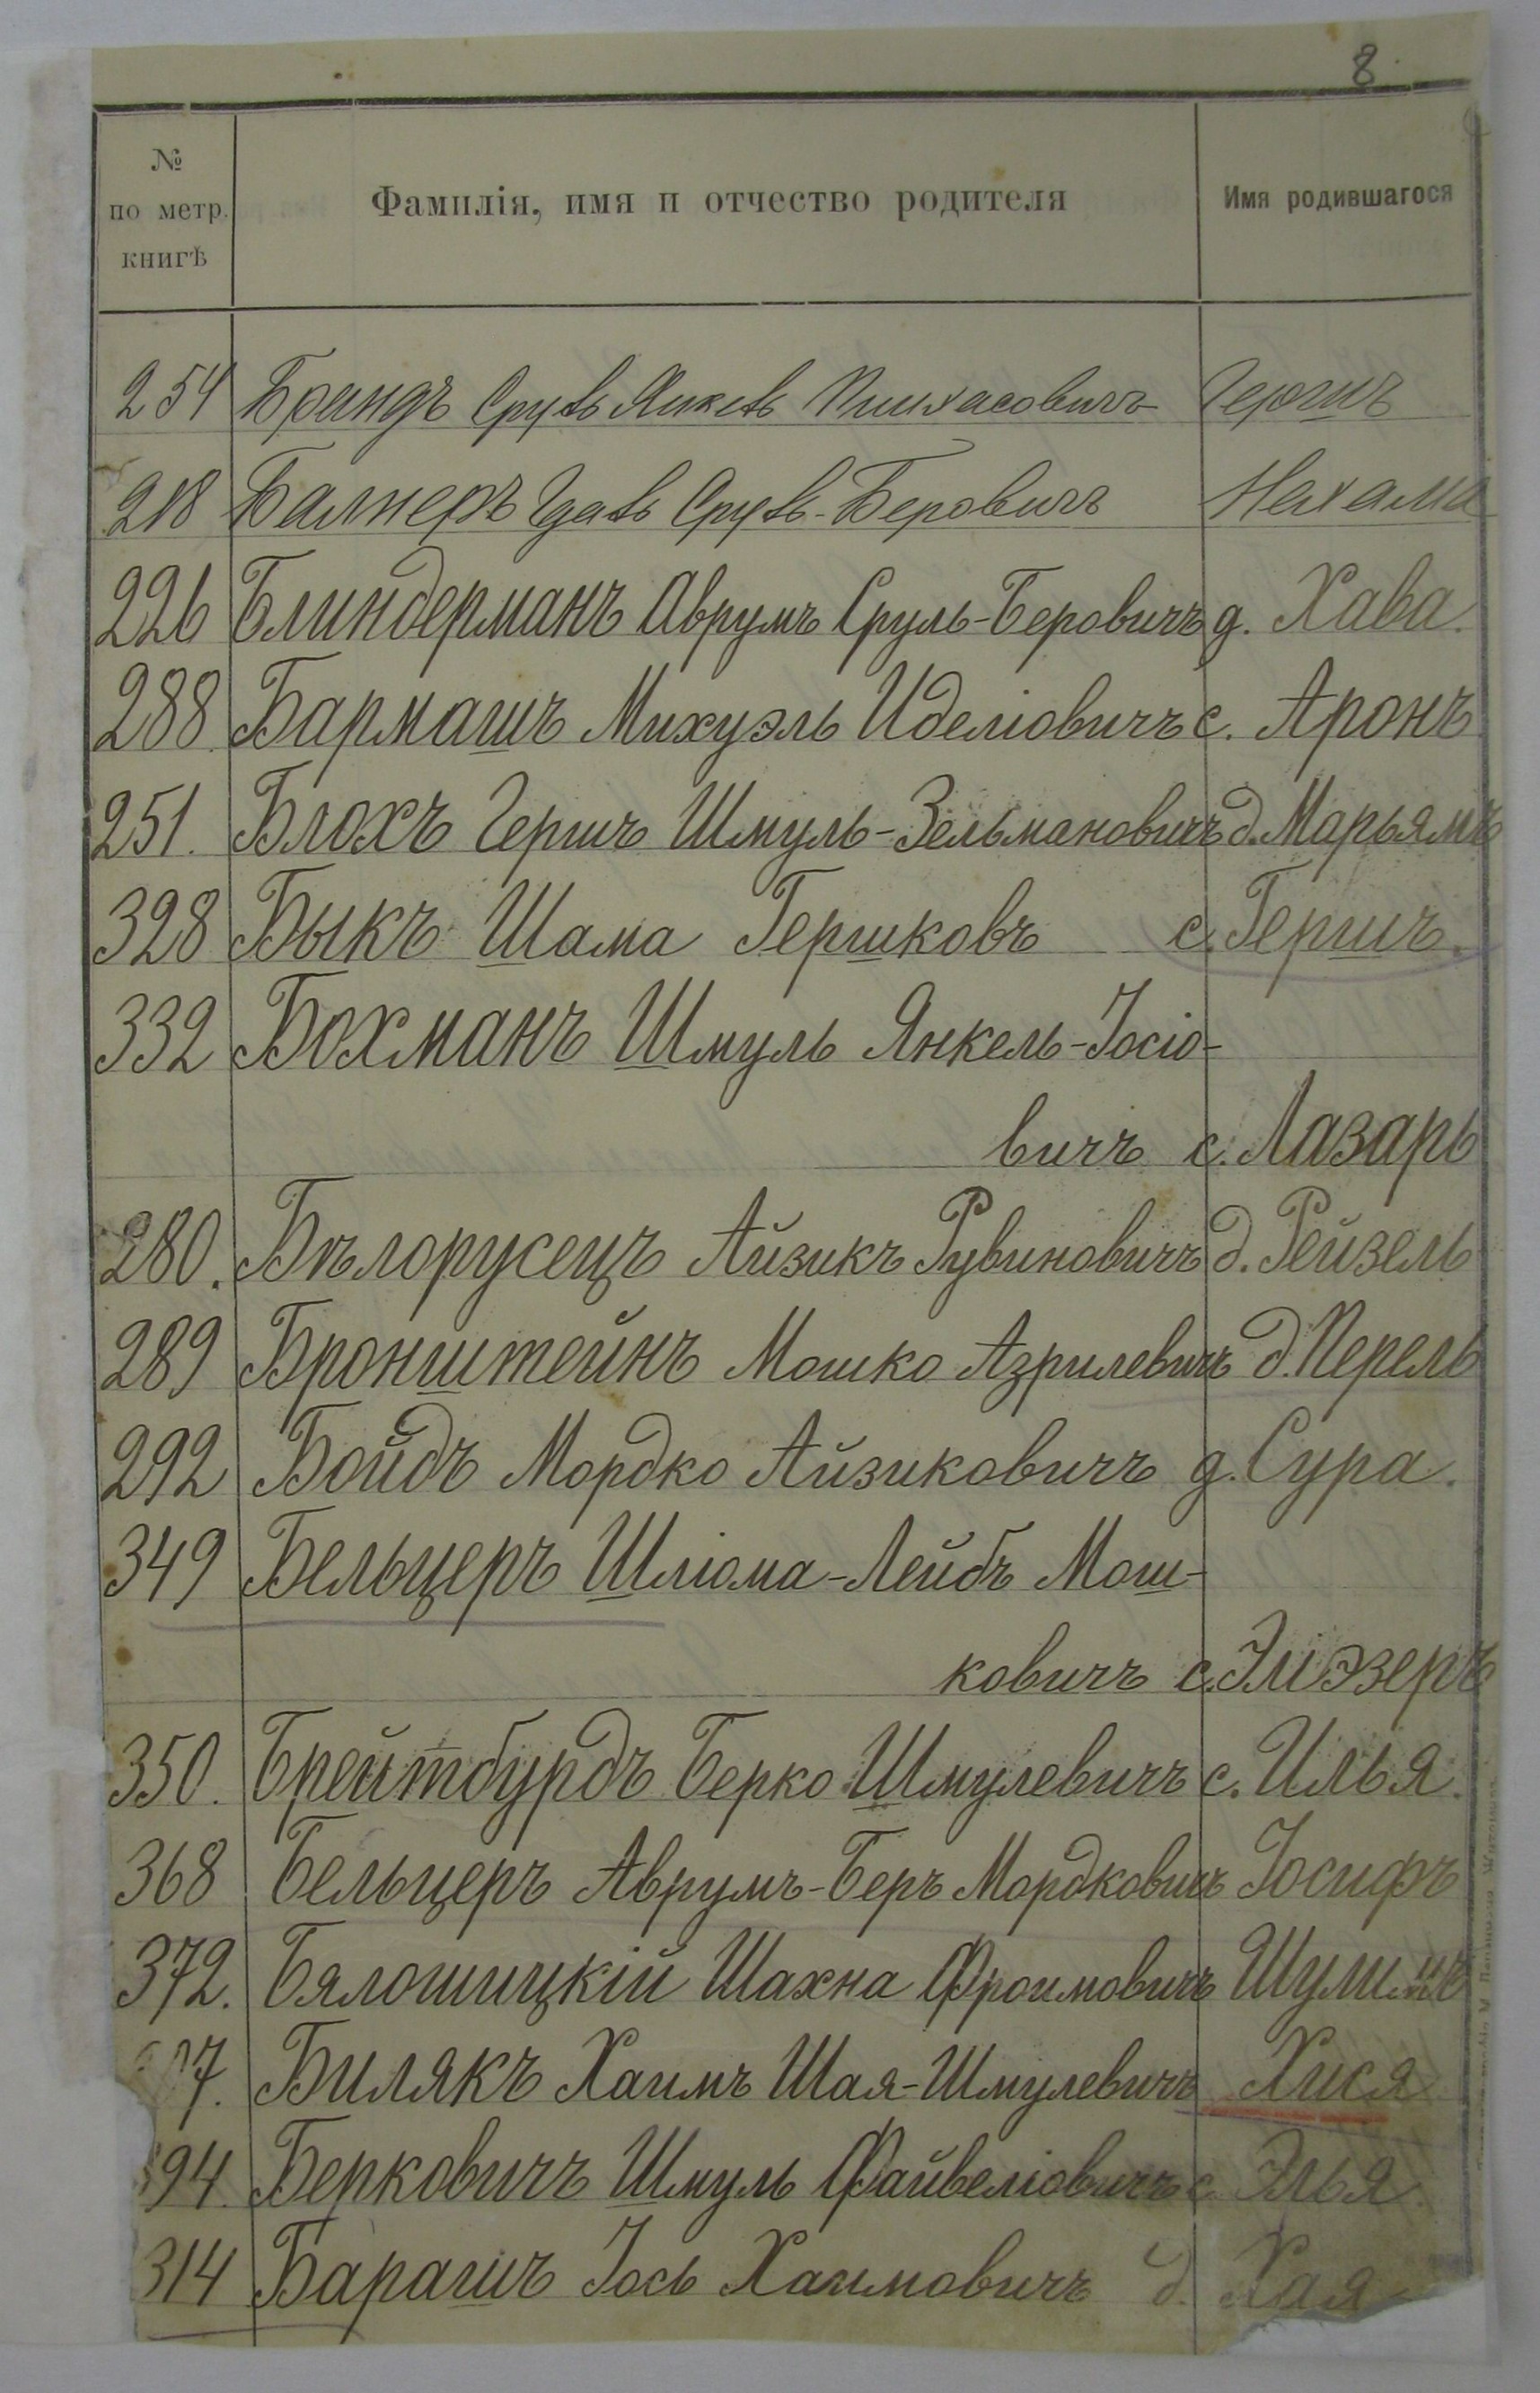 8
№
по метр.
книгѣ
Фамилія, имя и отчество родителя
Имя родившагося
254 Брандъ Сруль Янкель Пинхасовичъ Гершъ
218 Балнеръ Удель Сруль-Беровичъ Нехама
226 Блиндерманъ Аврумъ Сруль-Беровичъ д. Хава.
288. Бармашъ Михуэль Иделіовичъ с. Аронъ
251. Блохъ Гершъ Шмуль-Зельмановичъ д. Марьямъ
328 Быкъ Шама Гершковъ с. Гершъ.
332 Бохманъ Шмуль Янкель-Іосіо-
вичъ с. Лазарь
280. Бѣлорусецъ Айзикъ Рувиновичъ д. Рейзель
289 Бронштейнъ Мошко Азрилевичъ д. Перель
292 Бойдъ Мордко Айзиковичъ д. Сура.
349 Бельцеръ Шліома-Лейбъ Мош-
ковичъ с. Элиэзеръ
350. Брейтбурдъ Берко Шмулевичъ с. Илья.
368 Бельцеръ Аврумъ-Беръ Мордковичъ Іосифъ
372. Бялошицкій Шахна Фроимовичъ Шулимъ
07. Билякъ Хаимъ Шая-Шмулевичъ Хися
394. Берковичъ Шмуль Файвеліовичъ с. Элья.
314 Барашъ Іось Хаимовичъ д. Хая